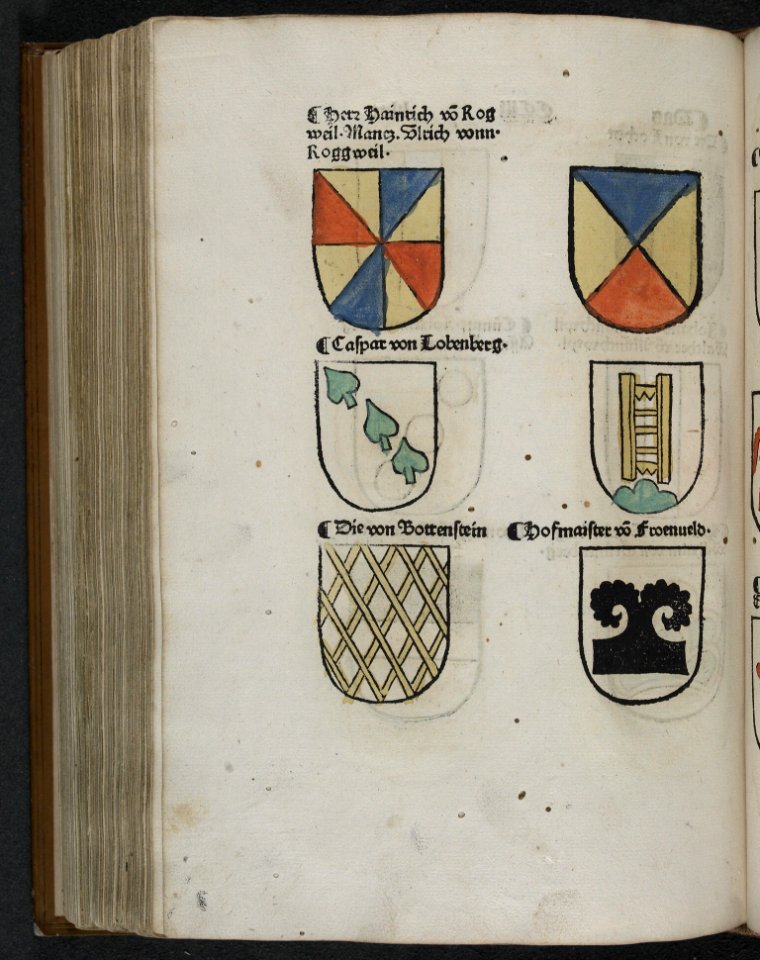 ⸿ Herr Hainrich võ Rog
weil. Mancz. Vlrich vonn.
Roggweil.
⸿ Caspar von Lobenberg.
⸿ Die von Bottenstein ⸿ Hofmaister võ Froenueld.